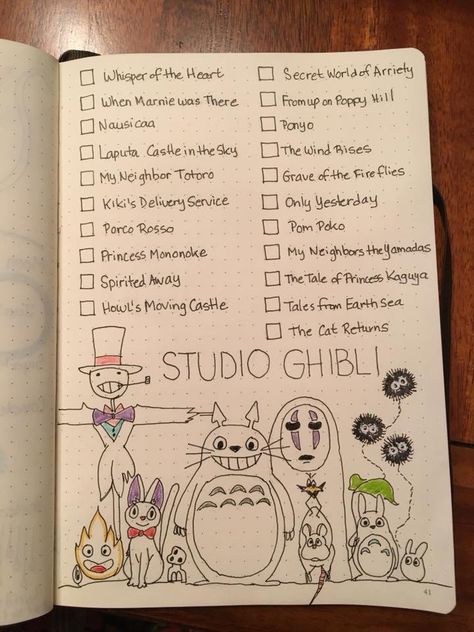 Whisper of the Heart
When Marnie was There
Nausicaa
Laputa Castle in the Sky
My Neighbor Totoro
Kiki's Delivery Service
Porco Rosso
Princess Mononoke
Spirited Away
Howl's Moving Castle
Secret World of Arriety
From up on Poppy Hill
Ponyo
The Wind Rises
Grave of the Fireflies
Only Yesterday
Pom Poko
My Neighbors the Yamadas
The Tale of Princess Kaguya
Tales from Earth Sea
The Cat Returns
STUDIO GHIBLI
41